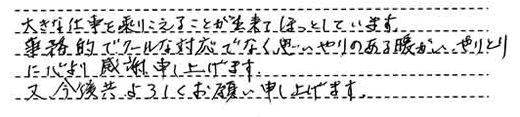 大きな仕事を乗りこえることが出来てほっとしています。
事務的でクールな対応でなく思いやりのある暖かいやりとり
に心より感謝申し上げます。
又、今後共よろしくお願い申し上げます。